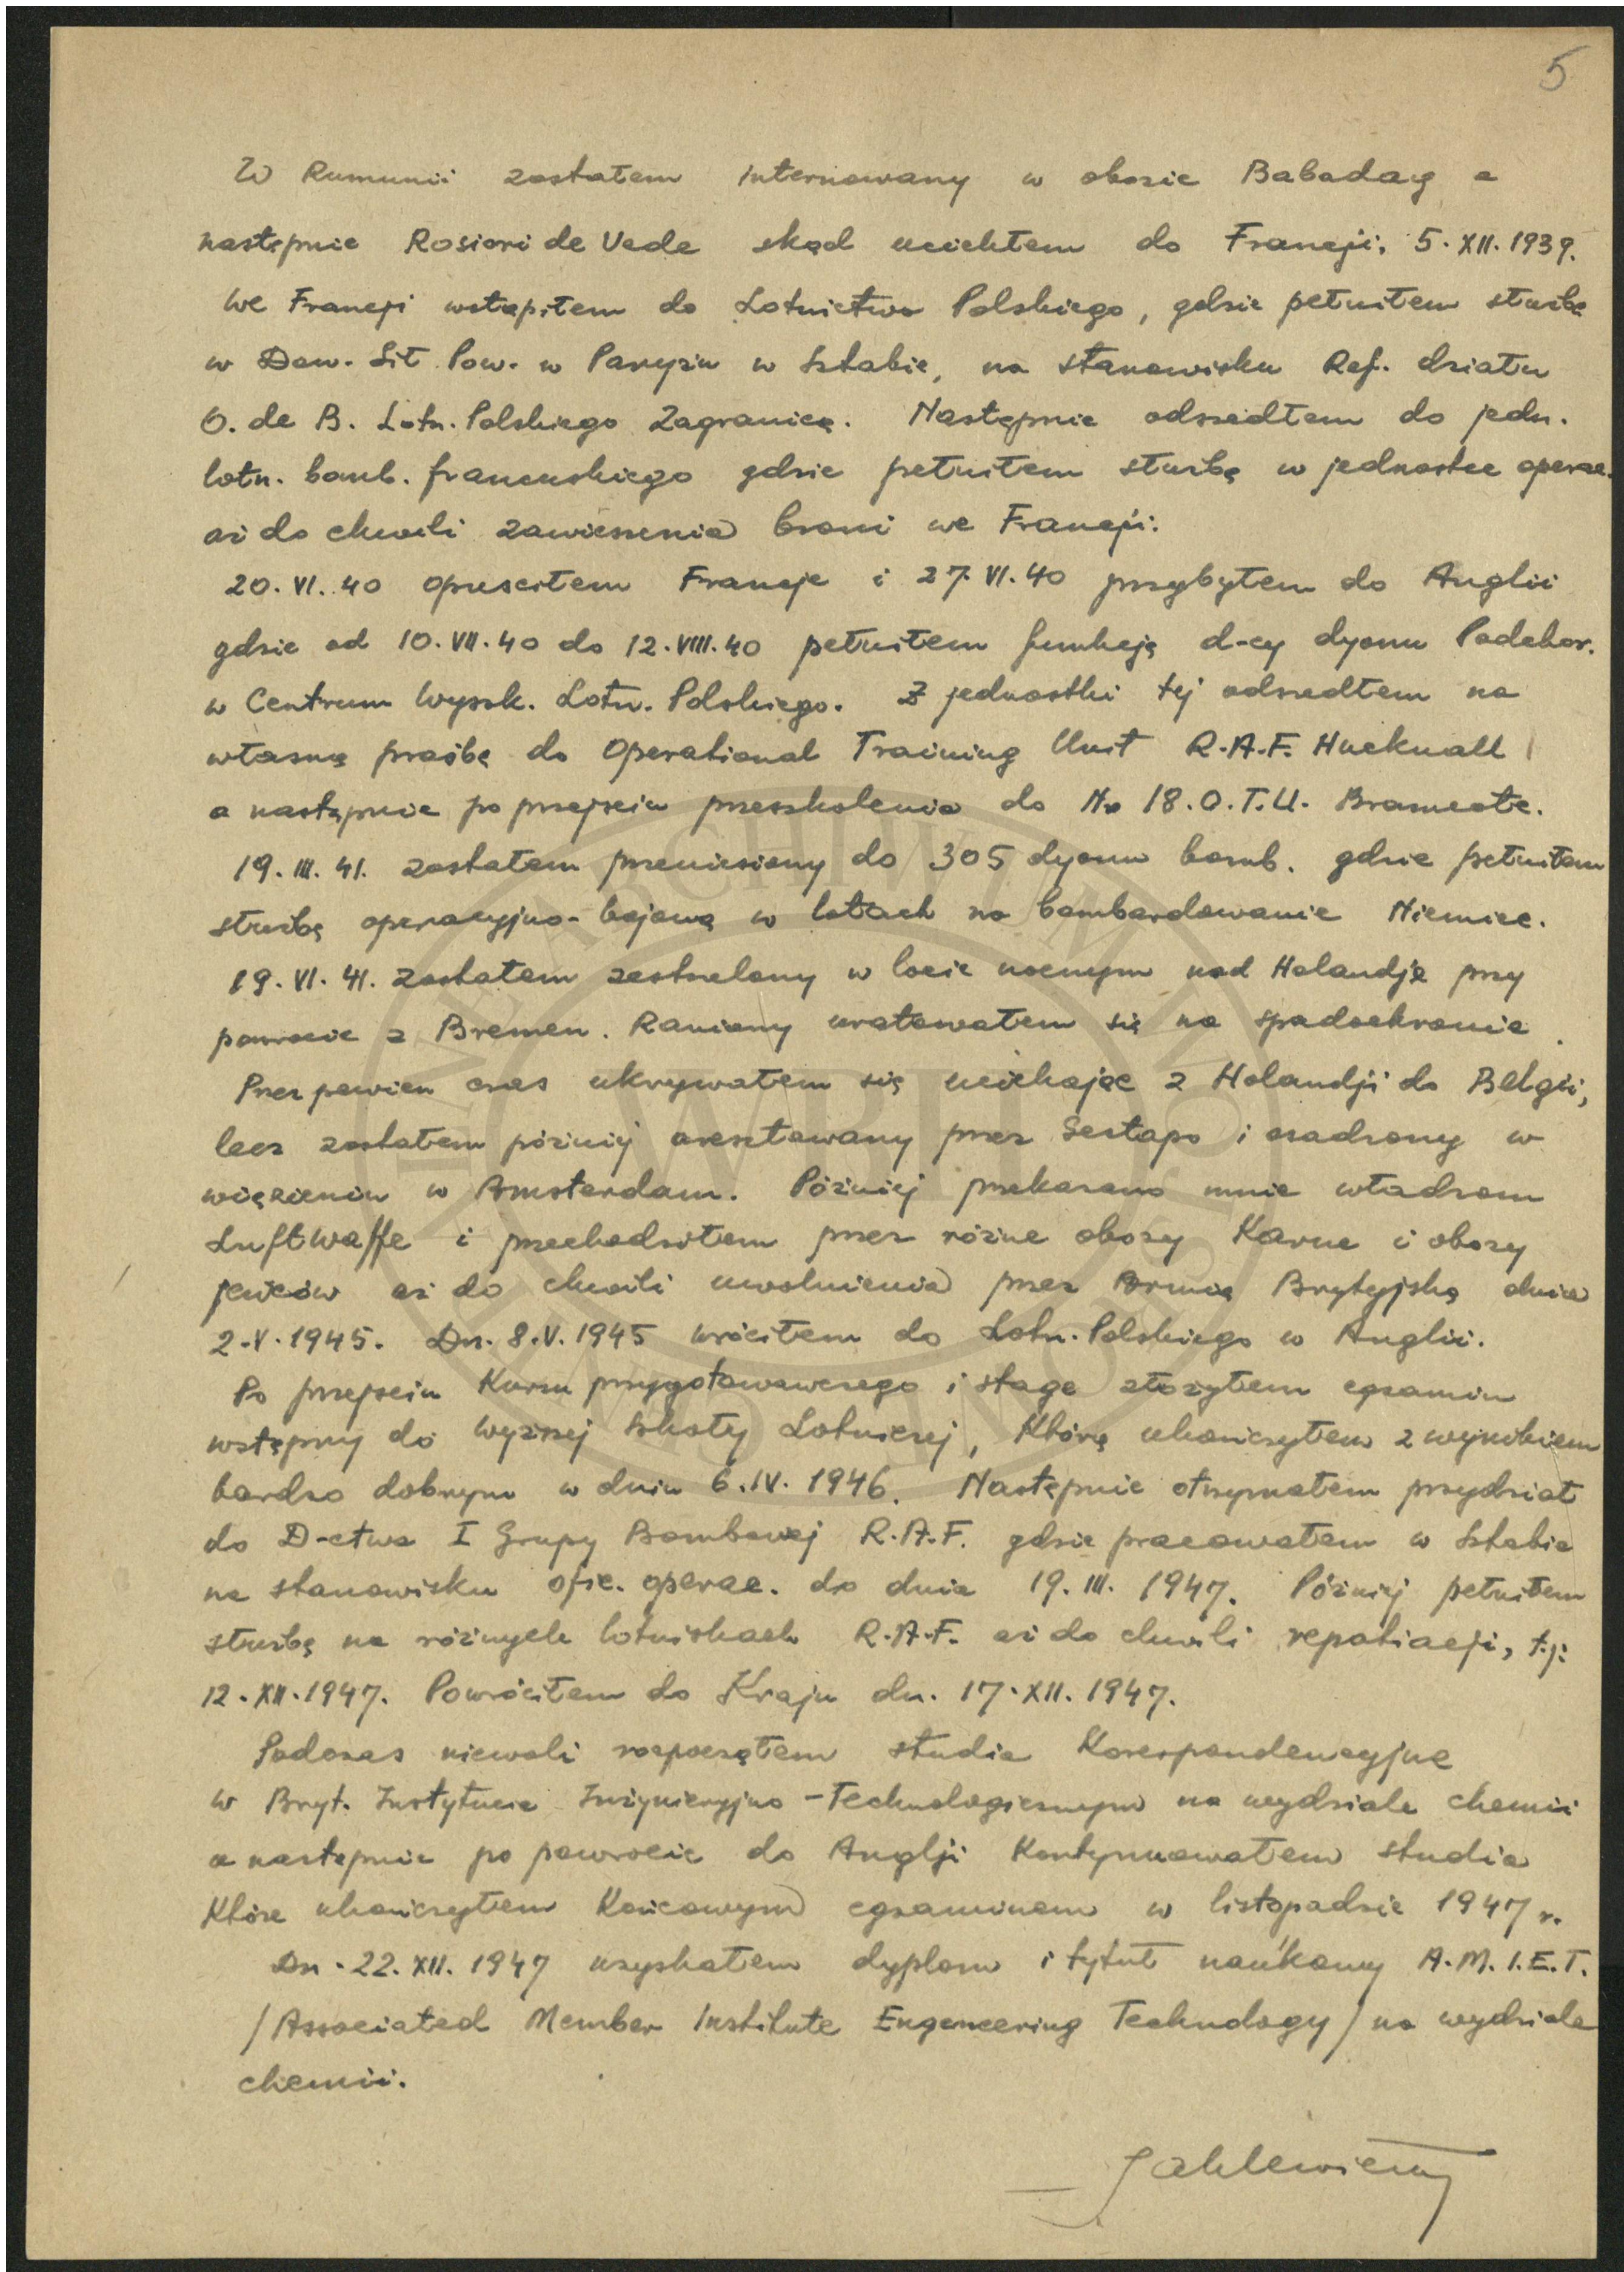 5
W Rumunii zostałem internowany w obozie Babadag a
następnie Rosiori de Vede skąd uciekłem do Francji, 5.XII.1939.
We Francji wstąpiłem do Lotnictwa Polskiego, gdzie pełniłem służbę
w Dow. Sił Pow. w Paryżu w Sztabie, na stanowisku Ref. działu
O. de B. Lotn. Polskiego Zagranicą. Następnie odszedłem do jedn.
lotn. bomb. francuskiego gdzie pełniłem służbę w jednostce operac.
aż do chwili zawieszenia broni we Francji.
20.VI.40 opuściłem Francje i 27.VI.40 przybyłem do Anglii
gdzie od 10.VII.40 do 12.VIII.40 pełniłem funkcję d-cy dyonu Podchor.
w Centrum Wyszk. Lotn. Polskiego. Z jednostki tej odszedłem na
własną prośbę do Operational Training Unit R.A.F. Hucknall
a następnie po przejściu przeszkolenia do No 18.O.T.U. Bramcote.
19.III.41. zostałem przeniesiony do 305 dyonu bomb. gdzie pełniłem
służbę operacyjno-bojową w lotach na bombardowanie Niemiec.
19.VI.41. zostałem zestrzelony w locie nocnym nad Holandją przy
powrocie z Bremen. Raniony uratowałem się na spadochronie.
Przez pewien czas ukrywałem się uciekając z Holandji do Belgii,
lecz zostałem później aresztowany przez Gestapo i osadzony w
więzieniu w Amsterdam. Później przekazano mnie władzom
Luftwaffe i przechodziłem przez różne obozy Karne i obozy
jeńców aż do chwili uwolnienia przez Armię Brytyjską dnia
2.V.1945. Dn. 8.V.1945 wróciłem do Lotn. Polskiego w Anglii.
Po przejściu Kursu przygotowawczego i stage złożyłem egzamin
wstępny do Wyższej Szkoły Lotniczej, Którą ukończyłem z wynikiem
bardzo dobrym w dniu 6.IV.1946. Następnie otrzymałem przydział
do D-ctwa I Grupy Bombowej R.A.F. gdzie pracowałem w Sztabie
na stanowisku ofic. operac. do dnia 19.III.1947. Później pełniłem
służbę na różnych lotniskach R.A.F. aż do chwili repatiacji, t.j.
12.XII.1947. Powróciłem do Kraju dn. 17.XII.1947.
Podczas niewoli rozpocząłem studia Korespondencyjne
w Bryt. Instytucie Inżynieryjno-Technologicznym na wydziale chemii
a następnie po powrocie do Anglji Kontynuowałem studia
Które ukończyłem Końcowym egzaminem w listopadzie 1947 r.
Dn. 22.XII.1947 uzyskałem dyplom i tytuł naukowy A.M.I.E.T.
/Associated Member Institute Engeneering Technology/ na wydziale
chemii.